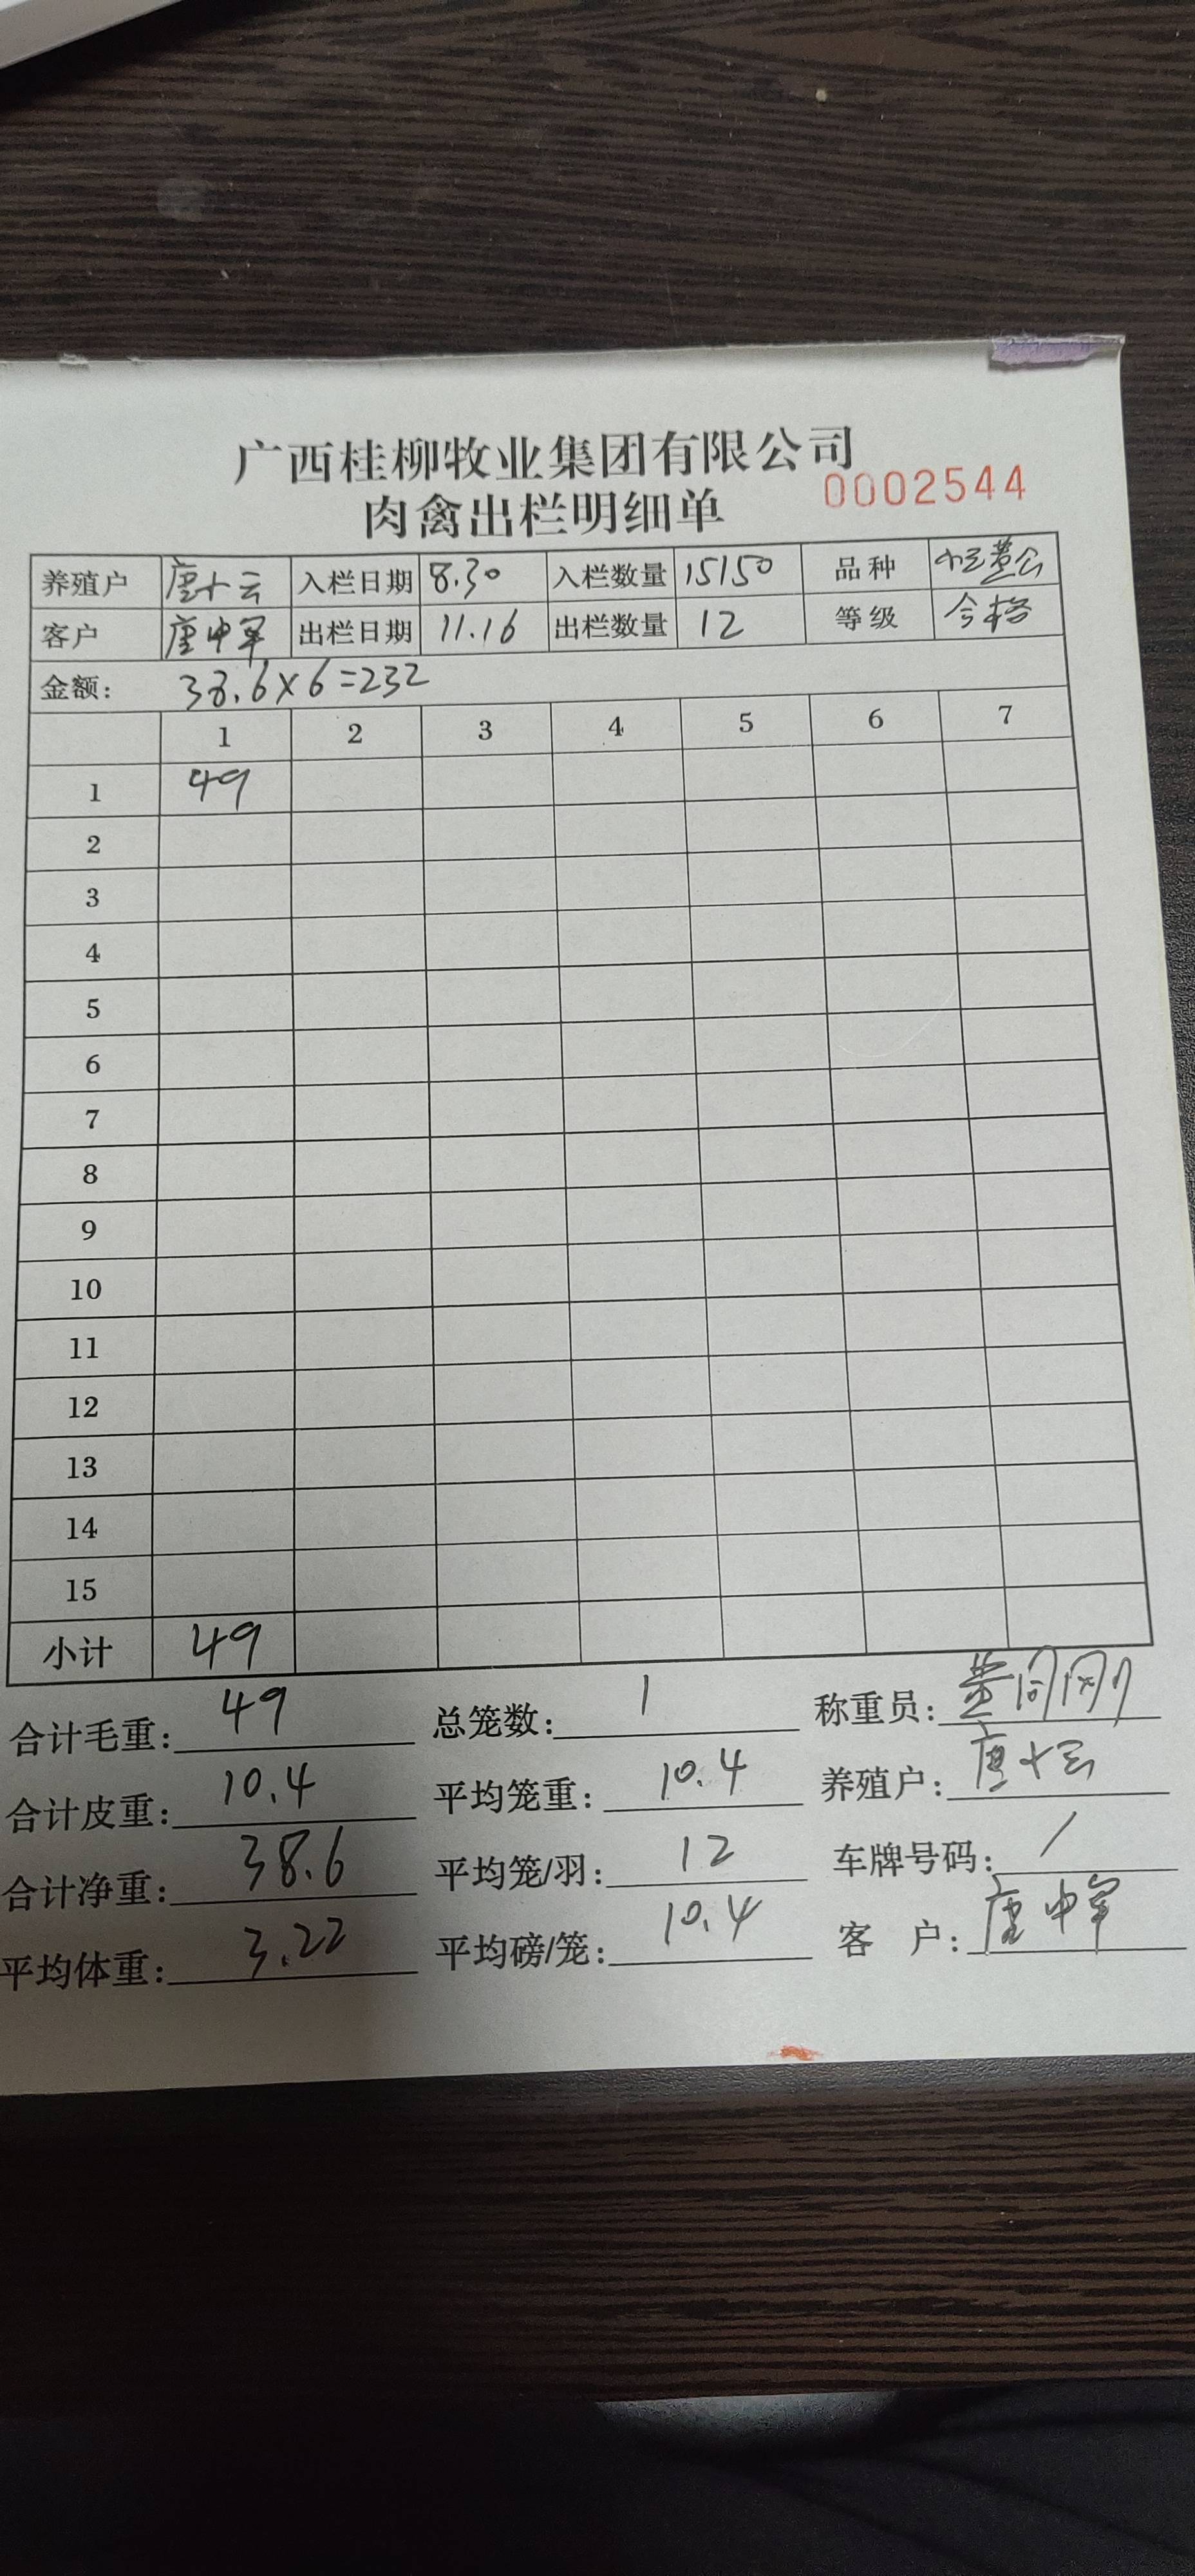 广西桂柳牧业集团有限公司
肉禽出栏明细单 0002544
养殖户 唐十云 入栏日期 8.30 入栏数量 15150 品种
客户 唐中军 出栏日期 11.16 出栏数量 12 等级 合格
金额: 38.6×6=232
1 2 3 4 5 6 7
1 49
2
3
4
5
6
7
8
9
10
11
12
13
14
15
小计 49
合计毛重: 49 总笼数: 1 称重员: 黄
合计皮重: 10.4 平均笼重: 10.4 养殖户: 唐十云
合计净重: 38.6 平均笼/羽: 12 车牌号码: /
平均体重: 3.22 平均磅/笼: 10.4 客 户: 唐中军